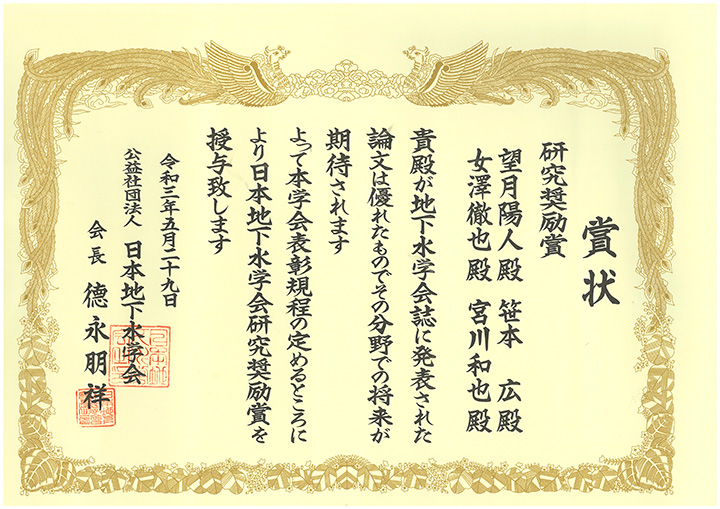 賞状
研究奨励賞
望月陽人殿 笹本 広殿
女澤徹也殿 宮川和也殿
貴殿が地下水学会誌に発表された
論文は優れたものでその分野での将来が
期待されます
よって本学会表彰規程の定めるところに
より日本地下水学会研究奨励賞を
授与致します
令和三年五月二十九日
公益社団法人 日本地下水学会
会長 德永朋祥